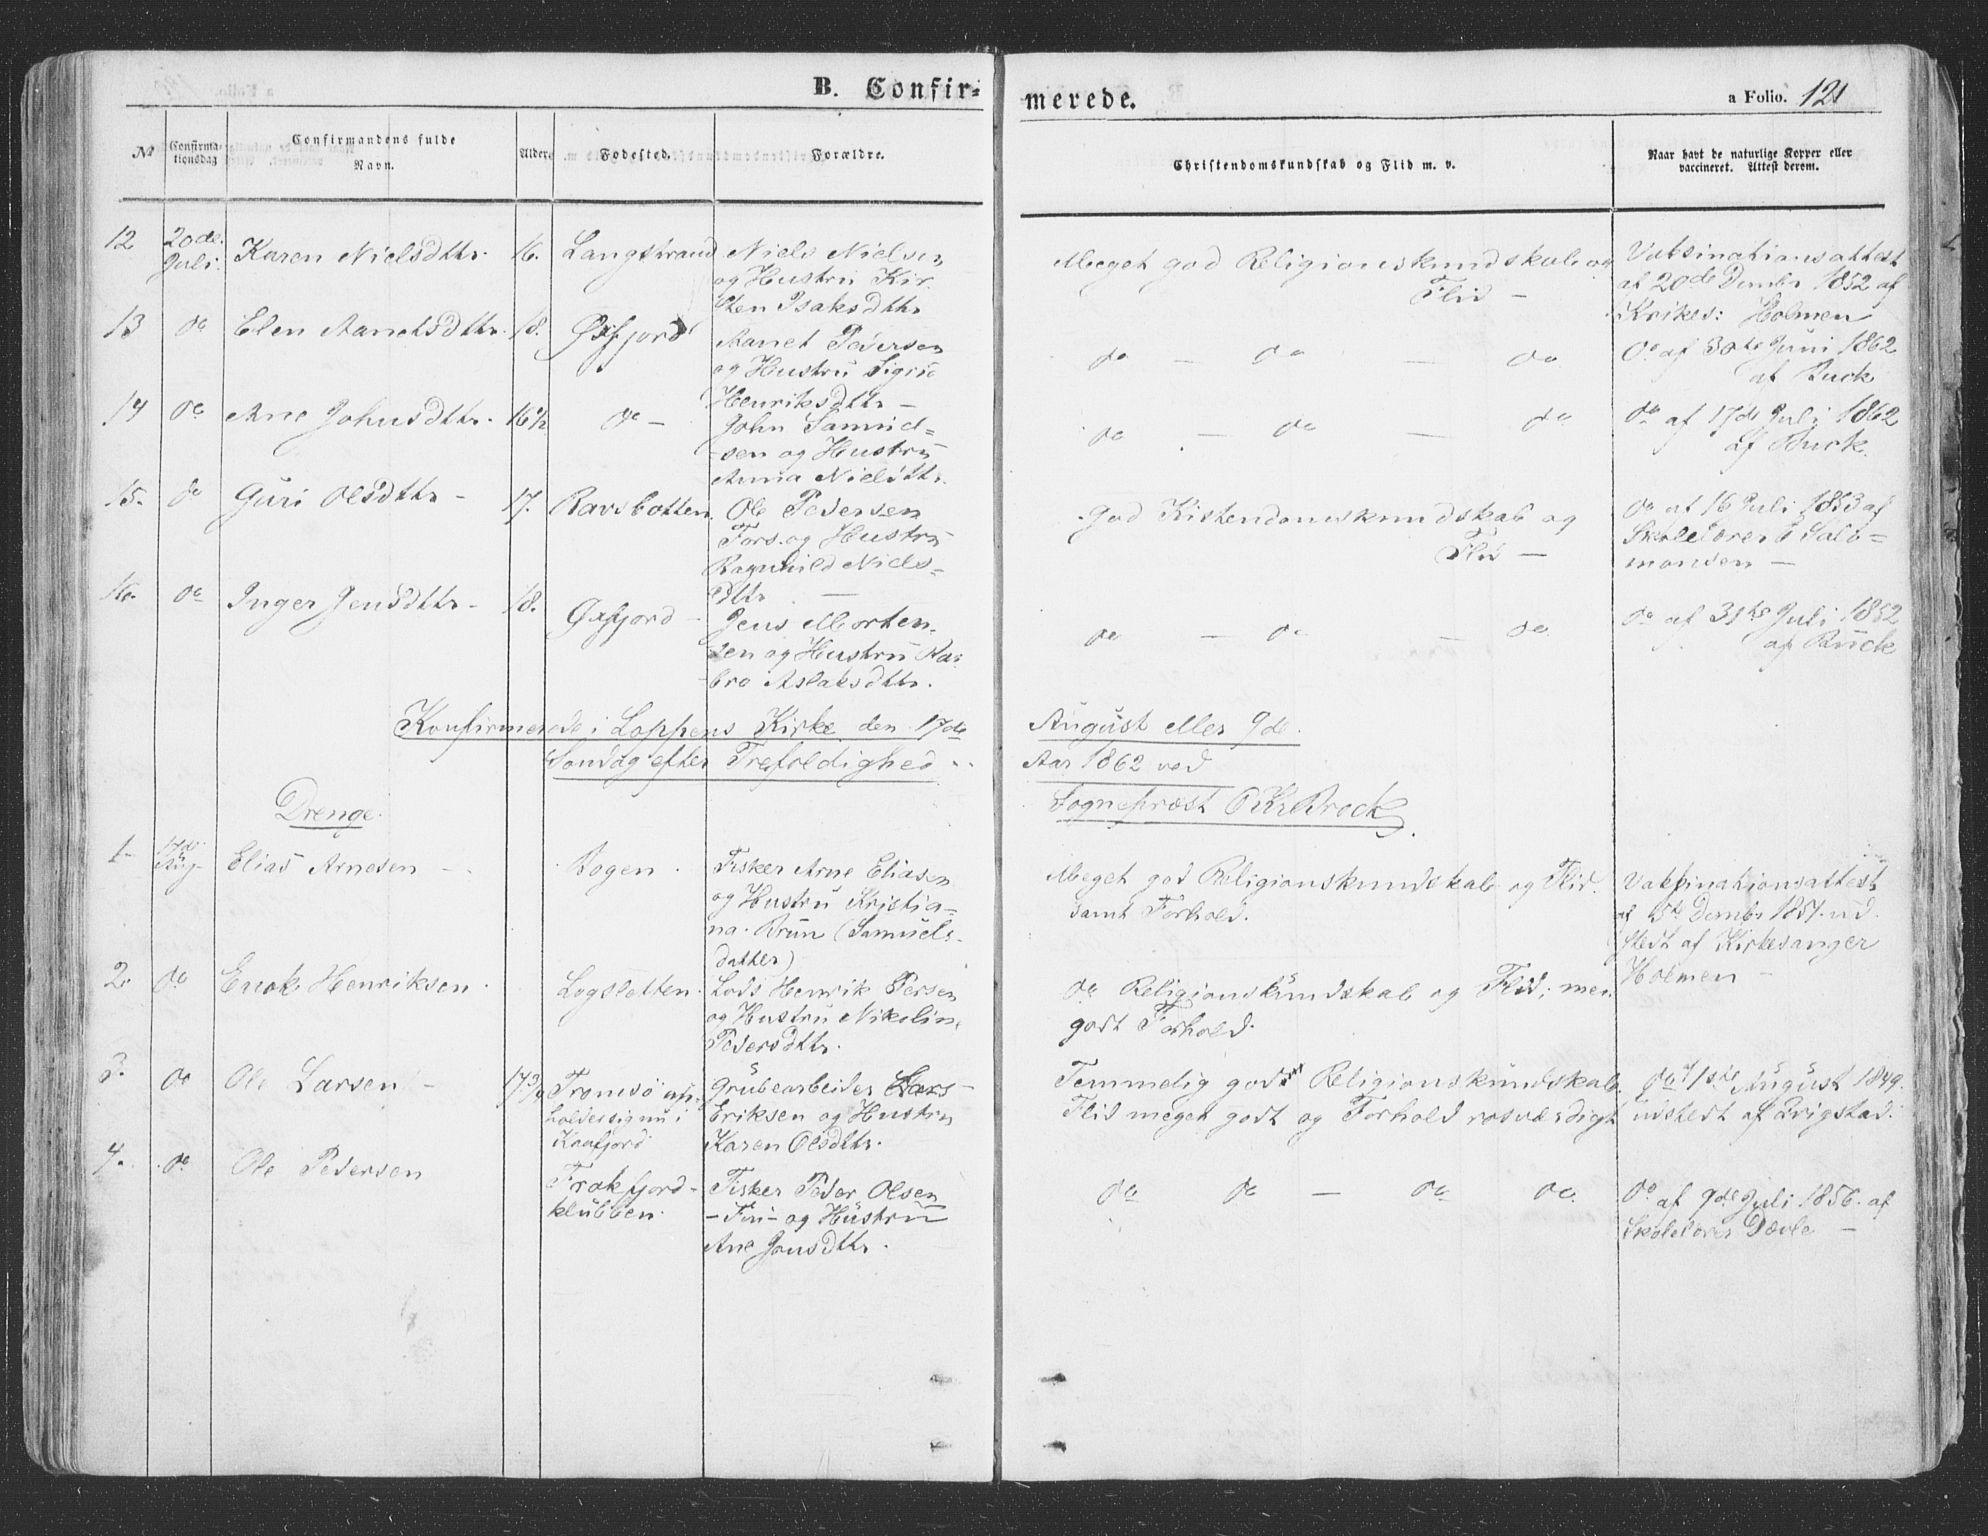 B. Confir-
merede.
a Folio. 121
No
Confirma-
tionsdag
Confirmandens fulde
Navn.
Alder.
Fødested.
Forældre.
Christendomskundskab og Flid m. v.
Naar havt de naturlige Kopper eller
vaccineret. Attest derom.
12 20de Juli. Karen Nielsdttr. 16. Langstrand Niels Nielsen
og Hustru Kir-
sten Isaksdttr
Meget god Religionskundskab og
Flid -
Vaksinationsattest
af 20de Dembr 1852 af
Kirkes: Holmen
13 do Elen Aanetsdttr. 18. Øxfjord Aanet Pedersen
og Hustru Sigrid
Henriksdttr -
do - do - do
do af 30te Juni 1862
af Buck
14 do Ane Johnsdttr. 16½ do - John Samuel-
sen og Hustru
Anna Nielsdttr.
do - do - do
do af 17de Juli 1862
af Buck.
15. do Guri Olsdttr - 17. Ravsbotten. Ole Pedersen
Fors. og Hustru
Ragnhild Niels-
dttr. -
God Kristendomskundskab og
Flid -
do af 16 Juli 1853 af
Skolelærer Salo-
monsen -
16. do Inger Jensdttr - 18. Øxfjord - Jens Morten-
sen og Hustru Bar-
bro Aslaksdttr.
do - do - do
do af 31te Juli 1852
af Buck
Konfirmerede i Loppens Kirke den 17de
August eller 9de.
Søndag efter Trefoldighed -
Aar 1862 ved
Sognepræst Brock
Drenge.
1. 17de Aug. Elias Arnesen - Bogen. Fisker Arne Eliasen
og Hustru Kristia-
na. Brun (Samuels-
datter)
Meget god Religionskundskab og Flid.
samt Forhold.
Vaksinationsattest
af 15de Dembr 1851. ud-
stedt af Kirkesanger
Holmen -
2. do Enok Henriksen. Logsletten. Lods Henrik Persen
og Hustru Nikoline
Pedersdttr.
do Religionskundskab og Flid; men
godt Forhold.
3. do Ole Larsen - 17¾ Tromsø op-
holdersig nu i
Kaafjord
Grubearbeider Lars
Eriksen og Hustru
Karen Olsdttr.
Temmelig god Religionskundskab.
Flid meget godt og Forhold rosværdigt
do 1ste August 1849.
udstedt af Qvigstad.
4. do Ole Pedersen
Frakfjord-
klubben.
Fisker Peder Olsen
- Fin - og Hustru
Ane Jonsdttr.
do do - do do
do af 9de Juli 1856. af
Skolelærer Dævle -